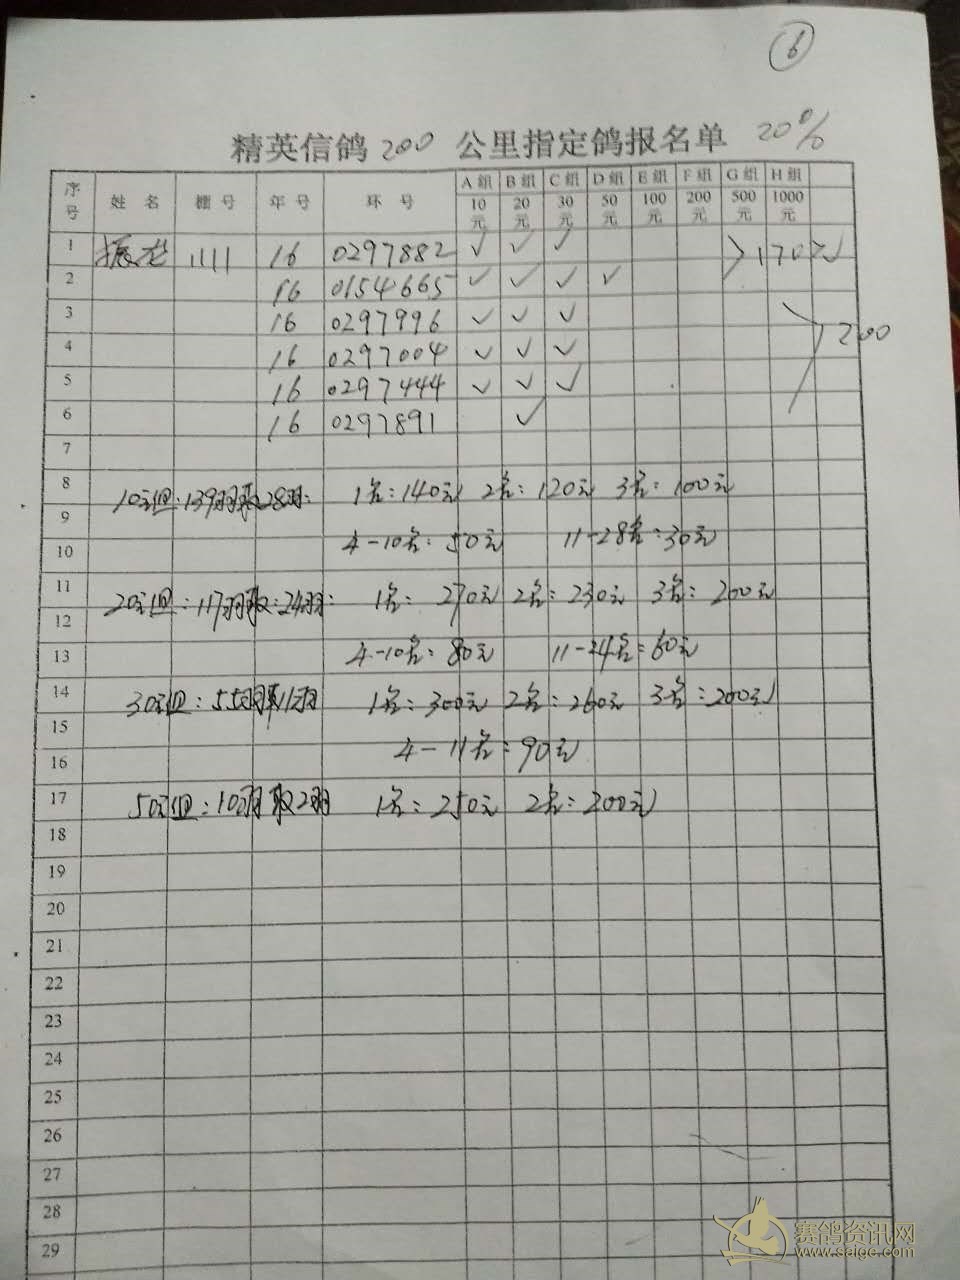 6
精英信鸽 200 公里指定鸽报名单 20%
序号 姓名 棚号 年号 环号 A组 10元 B组 20元 C组 30元 D组 50元 E组 100元 F组 200元 G组 500元 H组 1000元
1 1111 16 0297882 ✓ ✓ ✓ 170 ✓
2 16 0154665 ✓ ✓ ✓ ✓
3 16 0297996 ✓ ✓ ✓ 200
4 16 0297004 ✓ ✓ ✓
5 16 0297444 ✓ ✓ ✓
6 16 0297891 ✓
7
8 10元组:139羽取28羽: 1名:140元 2名:120元 3名:100元
9
10 4-10名:50元 11-28名:30元
11 20元组:117羽取:24羽: 1名:270元 2名:230元 3名:200元
12
13 4-10名:80元 11-24名:60元
14 30元组:55羽取11羽 1名:300元 2名:260元 3名:200元
15
16 4-11名:90元
17 50元组:10羽取2羽 1名:250元 2名:200元
18
19
20
21
22
23
24
25
26
27
28
29
赛鸽资讯网
www.saige.com